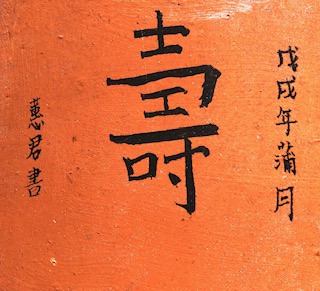 戊戌年蒲月
壽
蕙君書